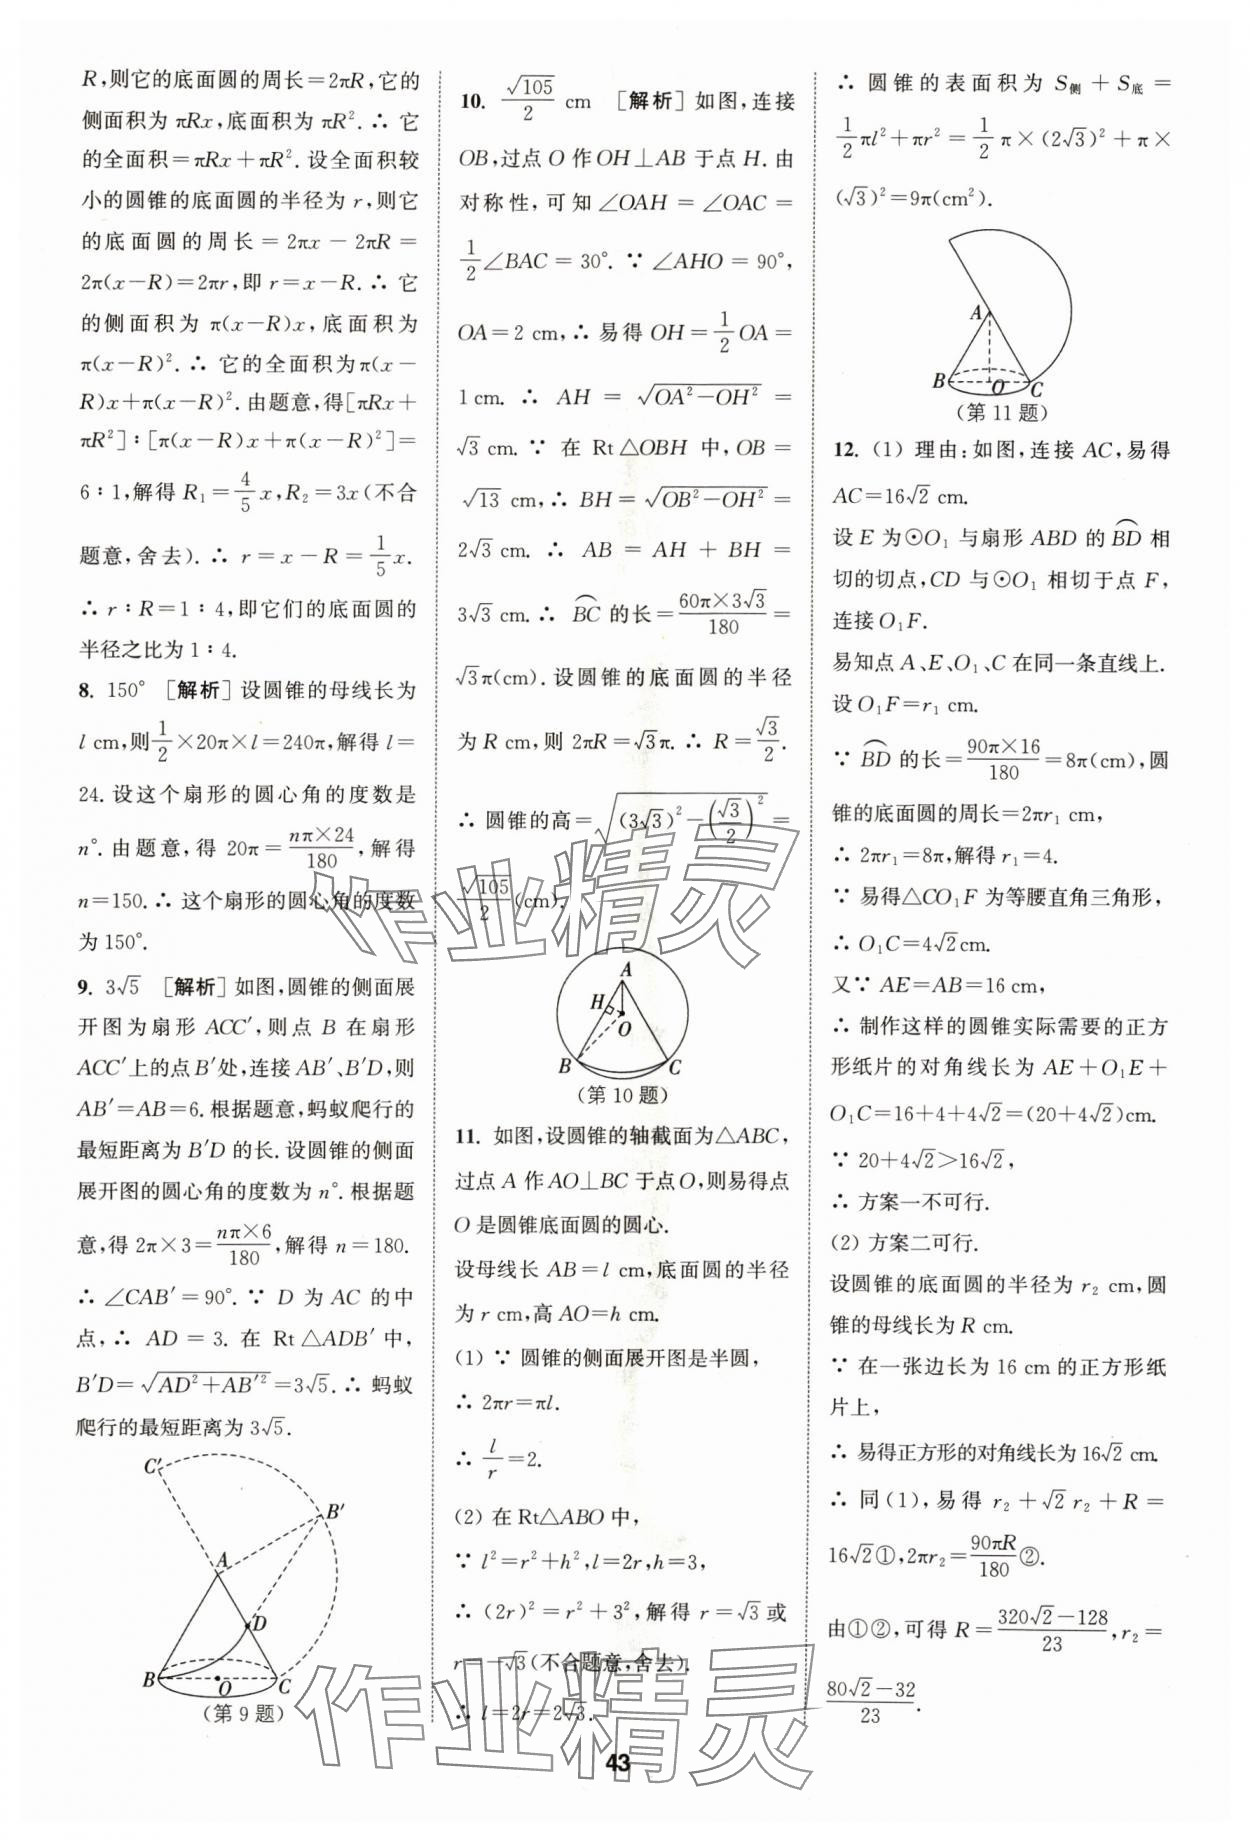 R,则它的底面圆的周长=2πR,它的
侧面积为πRx,底面积为πR².∴ 它
的全面积=πRx+πR².设全面积较
小的圆锥的底面圆的半径为r,则它
的底面圆的周长=2πx-2πR=
2π(x-R)=2πr,即r=x-R.∴ 它
的侧面积为π(x-R)x,底面积为
π(x-R)².∴ 它的全面积为π(x-
R)x+π(x-R)².由题意,得[πRx+
πR²]∶[π(x-R)x+π(x-R)²]=
6∶1,解得R₁=4/5x,R₂=3x(不合
题意,舍去).∴ r=x-R=1/5x.
∴ r∶R=1∶4,即它们的底面圆的
半径之比为1∶4.
8. 150° [解析]设圆锥的母线长为
l cm,则1/2×20π×l=240π,解得l=
24.设这个扇形的圆心角的度数是
n°.由题意,得20π=nπ×24/180,解得
n=150.∴ 这个扇形的圆心角的度数
为150°.
9. 3√5 [解析]如图,圆锥的侧面展
开图为扇形ACC′,则点B在扇形
ACC′上的点B′处,连接AB′、B′D,则
AB′=AB=6.根据题意,蚂蚁爬行的
最短距离为B′D的长.设圆锥的侧面
展开图的圆心角的度数为n°.根据题
意,得2π×3=nπ×6/180,解得n=180.
∴ ∠CAB′=90°.∵ D为AC的中
点,∴ AD=3.在Rt△ADB′中,
B′D=√(AD²+AB′²)=3√5.∴ 蚂蚁
爬行的最短距离为3√5.
C′
B′
A
D
B
O
C
(第9题)
10. √105/2 cm [解析]如图,连接
OB,过点O作OH⊥AB于点H.由
对称性,可知∠OAH=∠OAC=
1/2∠BAC=30°.∵ ∠AHO=90°,
OA=2 cm,∴ 易得OH=1/2OA=
1 cm.∴ AH=√(OA²-OH²)=
√3 cm.∵ 在Rt△OBH中,OB=
√13 cm,∴ BH=√(OB²-OH²)=
2√3 cm.∴ AB=AH+BH=
3√3 cm.∴ B͡C的长=60π×3√3/180=
√3π(cm).设圆锥的底面圆的半径
为R cm,则2πR=√3π.∴ R=√3/2.
∴ 圆锥的高=√((3√3)²-(√3/2)²)=
√105/2(cm).
A
H
O
B
C
(第10题)
11. 如图,设圆锥的轴截面为△ABC,
过点A作AO⊥BC于点O,则易得点
O是圆锥底面圆的圆心.
设母线长AB=l cm,底面圆的半径
为r cm,高AO=h cm.
(1) ∵ 圆锥的侧面展开图是半圆,
∴ 2πr=πl.
∴ l/r=2.
(2) 在Rt△ABO中,
∵ l²=r²+h²,l=2r,h=3,
∴ (2r)²=r²+3²,解得r=√3或
r=-√3(不合题意,舍去).
∴ l=2r=2√3.
∴ 圆锥的表面积为S侧+S底=
1/2πl²+πr²=1/2π×(2√3)²+π×
(√3)²=9π(cm²).
A
B
O
C
(第11题)
12. (1) 理由:如图,连接AC,易得
AC=16√2 cm.
设E为⊙O₁与扇形ABD的B͡D相
切的切点,CD与⊙O₁相切于点F,
连接O₁F.
易知点A、E、O₁、C在同一条直线上.
设O₁F=r₁ cm.
∵ B͡D的长=90π×16/180=8π(cm),圆
锥的底面圆的周长=2πr₁ cm,
∴ 2πr₁=8π,解得r₁=4.
∵ 易得△CO₁F为等腰直角三角形,
∴ O₁C=4√2cm.
又∵ AE=AB=16 cm,
∴ 制作这样的圆锥实际需要的正方
形纸片的对角线长为AE+O₁E+
O₁C=16+4+4√2=(20+4√2)cm.
∵ 20+4√2>16√2,
∴ 方案一不可行.
(2) 方案二可行.
设圆锥的底面圆的半径为r₂ cm,圆
锥的母线长为R cm.
∵ 在一张边长为16 cm的正方形纸
片上,
∴ 易得正方形的对角线长为16√2 cm.
∴ 同(1),易得r₂+√2r₂+R=
16√2①,2πr₂=90πR/180②.
由①②,可得R=(320√2-128)/23,r₂=
(80√2-32)/23.
作业精灵
作业精灵
43